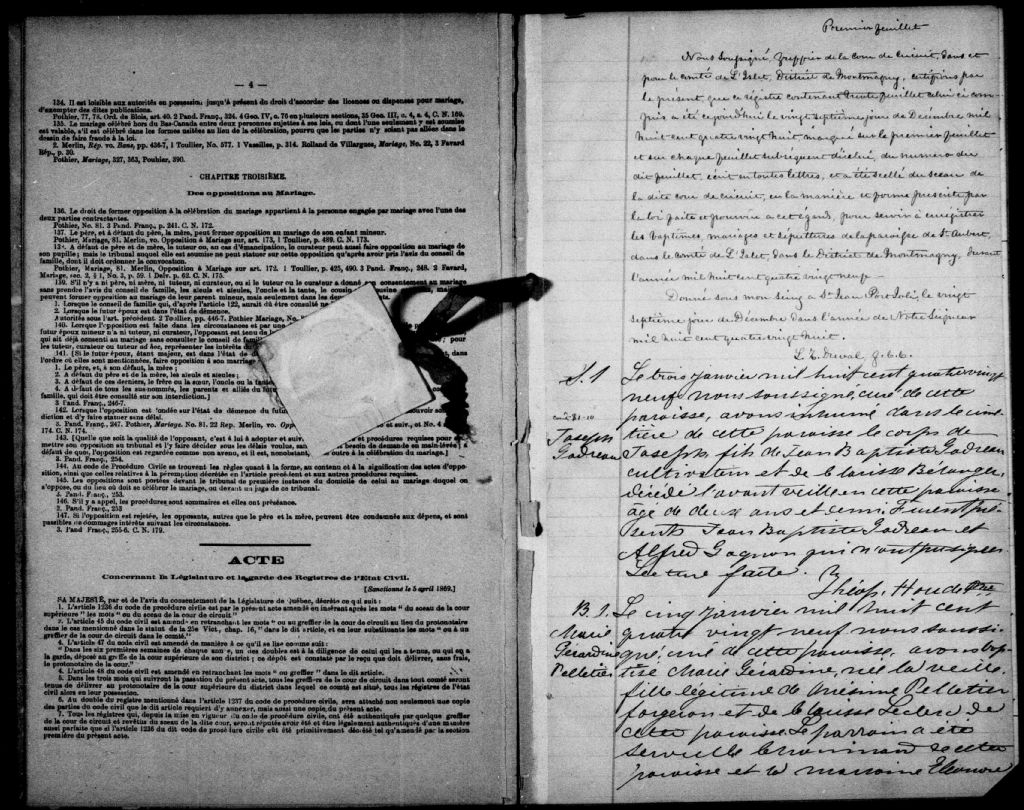 — 4 —
134. Il est loisible aux autorités en possession jusqu'à présent du droit d'accorder des licences ou dispenses pour mariage,
d'exempter des dites publications.
Pothier, 77, 78. Ord. de Blois, art. 40. 2 Pand. Franç., 324. 4 Geo. IV, c. 76 en plusieurs sections, 25 Geo. III, c. 4, s. 4, C. N. 169.
135. Le mariage célébré hors du Bas-Canada entre deux personnes sujettes à ses lois, ou dont l'une seulement y est soumise
est valable, s'il est célébré dans les formes usitées au lieu de la célébration, pourvu que les parties n'y soient pas allées dans le
dessin de faire fraude à la loi.
2. Merlin, Rép. vo. Bans, pp. 436-7, 1 Toullier, No. 577. 1 Vazeilles, p. 314. Rolland de Villargues, Mariage, No. 22, 3 Favard
Rép., p. 30.
Pothier, Mariage, 327, 363, Pouhier, 390.
CHAPITRE TROISIÈME.
Des oppositions au Mariage.
136. Le droit de former opposition à la célébration du mariage appartient à la personne engagée par mariage avec l'une des
deux parties contractantes.
Pothier, No. 81. 3 Pand. Franç., p. 241. C. N. 172.
137. Le père, et à défaut du père, la mère, peut former opposition au mariage de son enfant mineur.
Pothier, Mariage, 81. Merlin, vo. Opposition à Mariage sur art. 173, 1 Toullier, p. 489. C. N. 173.
138. A défaut de père et de mère, le tuteur ou, au cas d'émancipation, le curateur peut aussi faire opposition au mariage de
son pupille; mais le tribunal auquel elle est soumise ne peut statuer sur cette opposition qu'après avoir pris l'avis du conseil de
famille, dont il doit ordonner la convocation.
Pothier, Mariage, 81. Merlin, Opposition à Mariage sur art. 172. 1 Toullier, p. 425, 490. 3 Pand. Franç., 248. 2 Favard,
Mariage, sec. 2, § 1, No. 3, p. 59. 1 Delv. p. 62. C. N. 175.
139. S'il n'y a ni père, ni mère, ni tuteur, ni curateur, ou si le tuteur ou le curateur a donné son consentement au mariage
sans prendre l'avis du conseil de famille, les aïeuls et aïeules, l'oncle et la tante, le cousin
peuvent former opposition au mariage de leur parent mineur, mais seulement dans les
1. Lorsque le conseil de famille qui, d'après l'article 122, aurait dû être consulté ne
2. Lorsque le futur époux est dans l'état de démence.
Autorités sous l'art. précédent. 2 Toullier, pp. 446-7. Pothier Mariage, No.
140. Lorsque l'opposition est faite dans les circonstances et par une
futur époux mineur n'a ni tuteur, ni curateur, l'opposant est tenu de
qui ait déjà consenti au mariage sans consulter le conseil de famille
les tuteur, curateur ou tuteur ad hoc, représenter les intérêts
141. [Si le futur époux, étant majeur, est dans l'état de
l'ordre où elles sont mentionnées, faire opposition à son mariage
1. Le père, et, à son défaut, la mère;
2. A défaut du père et de la mère, les aïeuls et aïeules;
3. A défaut de ces derniers, le frère ou la sœur, l'oncle ou la tante
4. A défaut de tous les sus-nommés, les parents et alliés du futur
famille, qui doit être consulté sur son interdiction.]
3 Pand. Franç., 246-7.
142. Lorsque l'opposition est fondée sur l'état de démence du futur
diction et d'y faire statuer sans délai.
3. Pand. Franç., 247. Pothier, Mariage, No. 81. 22 Rep. Merlin, vo.
174. C. N. 174.
143. [Quelle que soit la qualité de l'opposant, c'est à lui à adopter et suivre et procédures requises pour
mettre son opposition au tribunal et l'y faire décider sous les délais voulus, sans besoin de demande en main-levée;
défaut de quoi, l'opposition est regardée comme non avenue, et il est, nonobstant outre à la célébration du mariage.]
3. Pand. Franç., 254.
144. Au code de Procédure Civile se trouvent les règles quant à la forme, au contenu et à la signification des actes d'oppo-
sition, ainsi que celles relatives à la péremption décrétée en l'article précédent et aux autres procédures requises.
145. Les oppositions sont portées devant le tribunal de première instance du domicile de celui au mariage duquel on
s'oppose, ou du lieu où doit se célébrer le mariage, ou devant un juge de ce tribunal.
3. Pand. Franç., 253.
146. S'il y a appel, les procédures sont sommaires et elles ont préséance.
2. Pand. Franç., 253
147. Si l'opposition est rejetée, les opposants, autres que le père et la mère, peuvent être condamnés aux dépens, et sont
passibles de dommages intérêts suivant les circonstances.
3. Pand Franç., 255-6. C. N. 179.
ACTE
Concernant la Législature et la garde des Registres de l'Etat Civil.
[Sanctionné le 5 avril 1869.]
SA MAJESTÉ, par et de l'avis du consentement de la Législature de Québec, décrète ce qui suit:
1. L'article 1236 du code de procédure civile est par le présent acte amendé en insérant après les mots "du sceau de la cour
supérieure" les mots "ou du sceau de la cour de circuit."
2. L'article 45 du code civil est amendé en retranchant les mots "ou au greffier de la cour de circuit au lieu du protonotaire
dans le cas mentionné dans le statut de la 25e Vict., chap. 16," dans le dit article, et en leur substituant les mots "ou à un
greffier de la cour de circuit dans le comté."
4. L'article 47 du code civil est amendé de manière à ce qu'il se lise comme suit:
"Dans les six premières semaines de chaque année, un des doubles est à la diligence de celui qui les a tenus, ou qui en a
la garde, déposé au greffe de la cour supérieure de son district; ce dépôt est constaté par le reçu que doit délivrer, sans frais,
le protonotaire de la cour."
4. L'article 48 du code civil est amendé en retranchant les mots "ou greffier" dans le dit article.
5. Dans les trois mois qui suivront la passation du présent acte, tous les greffiers de la cour de circuit dans tout comté seront
tenus de délivrer au protonotaire de la cour supérieure du district dans lequel ce comté est situé, tous les registres de l'état
civil alors en leur possession.
6. Au double du registre mentionné dans l'article 1237 du code de procédure civile, sera attaché non seulement une copie
des parties du code civil que le dit article requiert d'y annexer, mais aussi une copie du présent acte.
7. Tous les registres qui, depuis la mise en vigueur du code de procédure civile, ont été authentiqués par quelque greffier
de la cour de circuit et revêtus du sceau de la dite cour, seront réputés avoir été et être légalement authentiqués d'une manière
aussi parfaite que si l'article 1236 du dit code de procédure civile eût été primitivement décrété tel qu'amendé par la section
première du présent acte.
Premier feuillet
Nous soussigné, Greffier de la cour de circuit, dans et
pour le comté de L'Islet, District de Montmagny, certifions par
le présent, que ce régistre contenant trente feuillets celui-ci com-
pris a été ce jourd'hui le vingt septième jour de Décembre mil
huit cent quatre vingt huit marqué sur le premier feuillet
et sur chaque feuillet subséquent d'icelui, du numéro du
dit feuillet, écrit en toutes lettres, et a été scellé du sceau de
la dite cour de circuit, en la manière et forme prescrite par
la loi faite et pourvue à cet égard, pour servir à enregistrer
les baptêmes, mariages et sépultures de la paroisse de St. Aubert,
dans le Comté de L'Islet, dans le District de Montmagny, durant
l'année mil huit cent quatre vingt neuf —
Donné sous mon seing à St Jean Port Joli, le vingt
septième jour de Décembre dans l'année de Notre Seigneur
mil huit cent quatre vingt huit.
S. 1
Joseph
Gadreau
Le trois janvier mil huit cent quatre vingt
neuf nous soussigné, curé de cette
paroisse, avons inhumé dans le cime-
tière de cette paroisse le corps de
Joseph, fils de Jean Baptiste Gadreau
cultivateur et de Clarisse Bélanger,
décédé l'avant veille en cette paroisse
âgé de deux ans et demi. Furent pré-
sents Jean Baptiste Gadreau et
Alfred Gagnon qui n'ont pu signer.
Lecture faite.
Théop. Houde Ptre
B. 1.
Marie
Gérardine
Pelletier
Le cinq janvier mil huit cent
quatre vingt neuf nous soussi-
gné, curé de cette paroisse, avons bap-
tisé Marie Gérardine, née la veille
fille légitime de Pelletier
forgeron et de Leclerc de
cette paroisse. Le parrain a été
de cette
paroisse et la marraine Eléonore